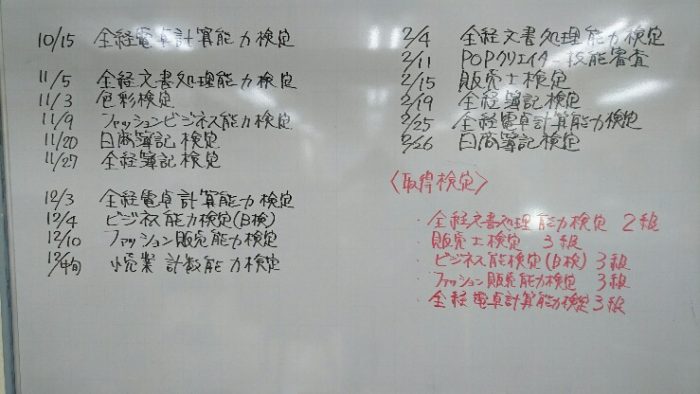 10/15 全経電卓計算能力検定
11/5 全経文書処理能力検定
11/3 色彩検定
11/9 ファッションビジネス能力検定
11/20 日商簿記検定
11/27 全経簿記検定
12/3 全経電卓計算能力検定
12/4 ビジネス能力検定(B検)
12/10 ファッション販売能力検定
12/中旬 小売業 計数能力検定
2/4 全経文書処理能力検定
2/11 POPクリエイター技能審査
2/15 販売士検定
2/19 全経簿記検定
2/25 全経電卓計算能力検定
2/26 日商簿記検定
〈取得検定〉
・全経文書処理能力検定 2級
・販売士検定 3級
・ビジネス能検定(B検) 3級
・ファッション販売能力検定 3級
・全経電卓計算能力検定 3級